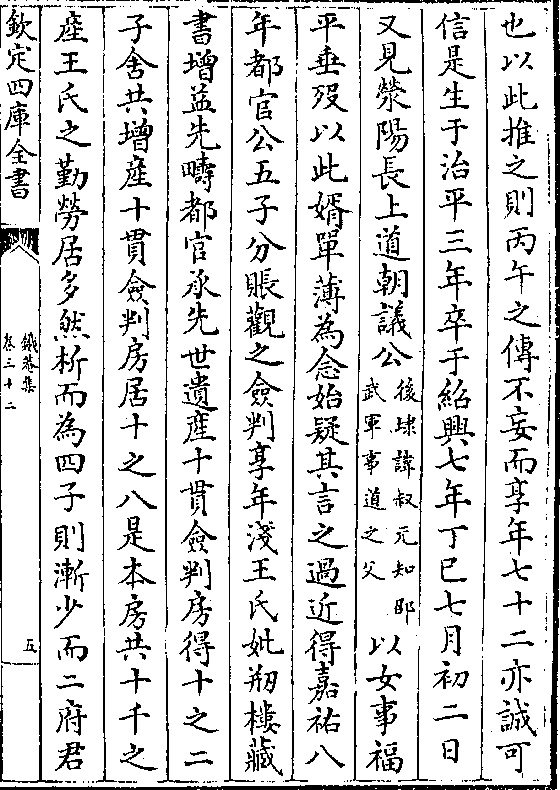 也以此推之則丙午之傳不妄而享年七十二亦誠可
信是生于治平三年卒于紹興七年丁巳七月初二日
又見滎陽長上道朝議公後埭諱叔元知邵武軍事道之父以女事福
平垂歿以此婿單薄為念始疑其言之過近得嘉祐八
年都官公五子分賬觀之僉判享年淺王氏妣剏樓藏
書增益先疇都官承先世遺產十貫僉判房得十之二
子舍共增產十貫僉判房居十之八是本房共十千之
產王氏之勤勞居多然析而為四子則漸少而二府君
欽定四庫全書
鐵菴集
卷三十二
五